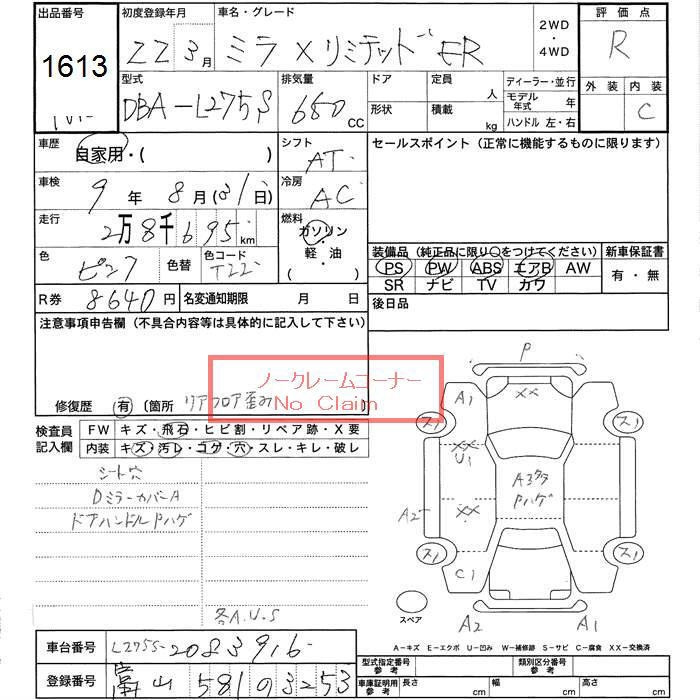 出品番号 初度登録年月 車名・グレード 2WD・4WD 評価点
1613 22 3月 ミラ Xリミテッド R
型式 排気量 ドア 定員 人 ディーラー・並行 外装 内装
DBA-L275S 660 CC 形状 積載 kg モデル年式 年 C
ハンドル 左・右
車歴 自家用・( ) シフト AT セールスポイント(正常に機能するものに限ります)
車検 9年 8月(31日) 冷房 AC
走行 2万8千695km 燃料 ガソリン・軽・油
色 ピンク 色替 色コード T22
装備品(純正品に限り○をつけてください) 新車保証書
PS PW ABS エアB AW 有・無
SR ナビ TV カワ
R券 8640円 名変通知期限 月 日 後日品
注意事項申告欄(不具合内容等は具体的に記入して下さい)
ノークレームコーナー
No Claim
修復歴 有 〔箇所 リアフロア歪み
検査員記入欄 FW キズ・飛石・ヒビ割・リペア跡・X要
内装 キズ・汚レ・コゲ・穴・スレ・キレ・破レ
シート穴
DミラーカバーA
ドアハンドルPハゲ
各A.U.S
P
A1 XX
ス1 ス1
XX
U1
A3タタ
Pハゲ
A2 XX
ス1 ス1
C1
スペア A2 A1
A-キズ E-エクボ U-凹み W-補修跡 S-サビ C-腐食 XX-交換済
車台番号 L275S-2083916
登録番号 富山 581 の 3253
型式指定番号 参考 類別区分番号 参考
車庫証明用 参考 長さ cm 幅 cm 高さ cm